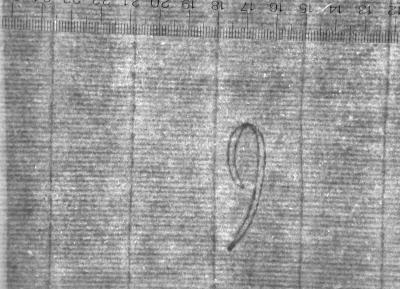 23 22 21 20 19 18 17 16 15 14 13 12